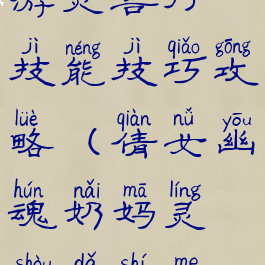 jì néng jì qiǎo gōng
技能技巧攻
lüè qiàn nǚ yōu
略(倩女幽
hún nǎi mā líng
魂奶妈灵
shòu dǎ shí me